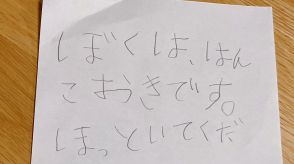 ぼくは、はん
こおうきです。
ほっといてくだ